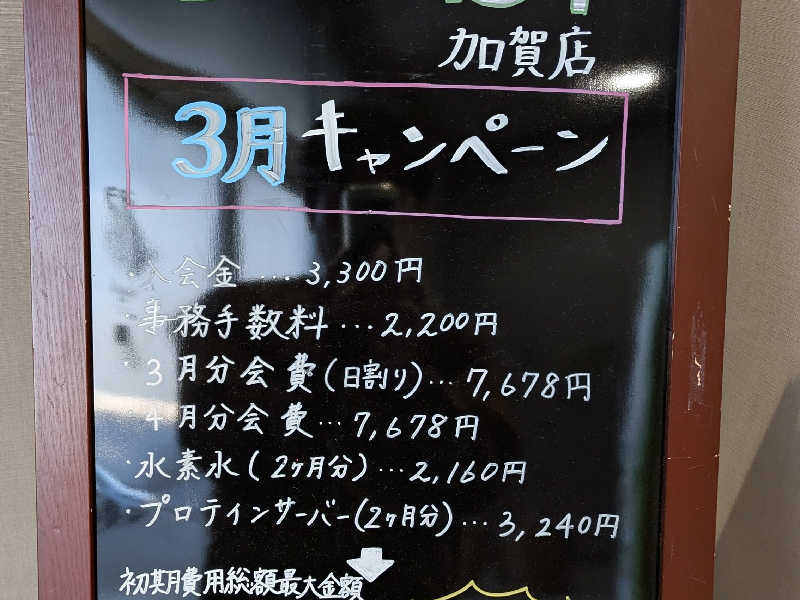 加賀店
3月キャンペーン
・入会金…3,300円
・事務手数料…2,200円
・3月分会費(日割り)…7,678円
・4月分会費…7,678円
・水素水(2ヶ月分)…2,160円
・プロテインサーバー(2ヶ月分)…3,240円
初期費用総額最大金額